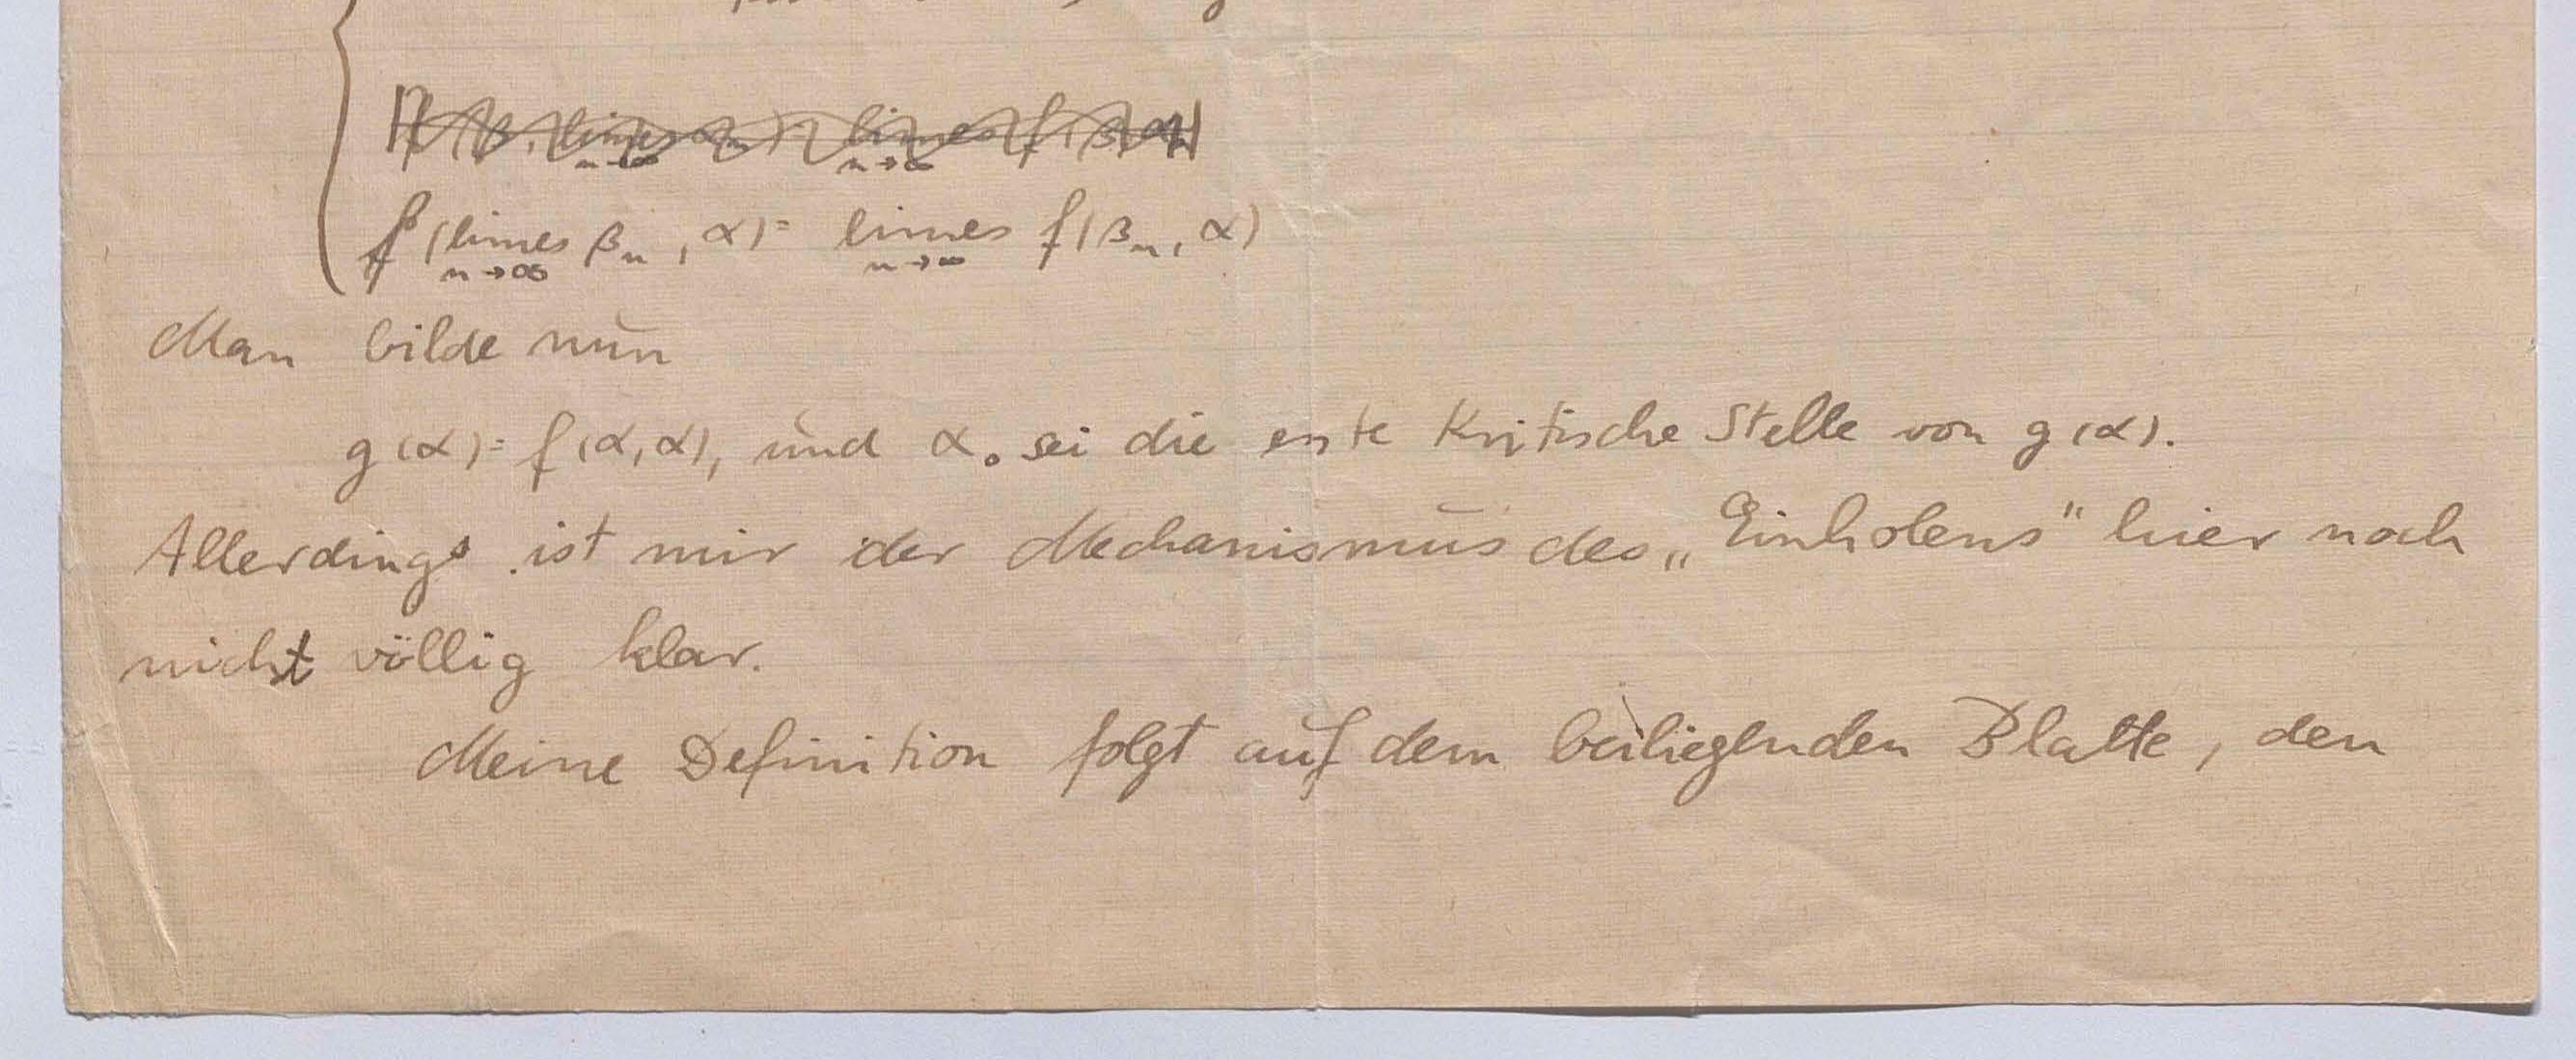 f(limes β_n, α) = limes f(β_n, α)
n→∞ n→∞
Man bilde nun
g(α) = f(α, α), und α₀ sei die erste Kritische Stelle von g(α).
Allerdings ist mir der Mechanismus des „Einholens" hier noch
nicht völlig klar.
Meine Definition folgt auf dem beiliegenden Blatte, den